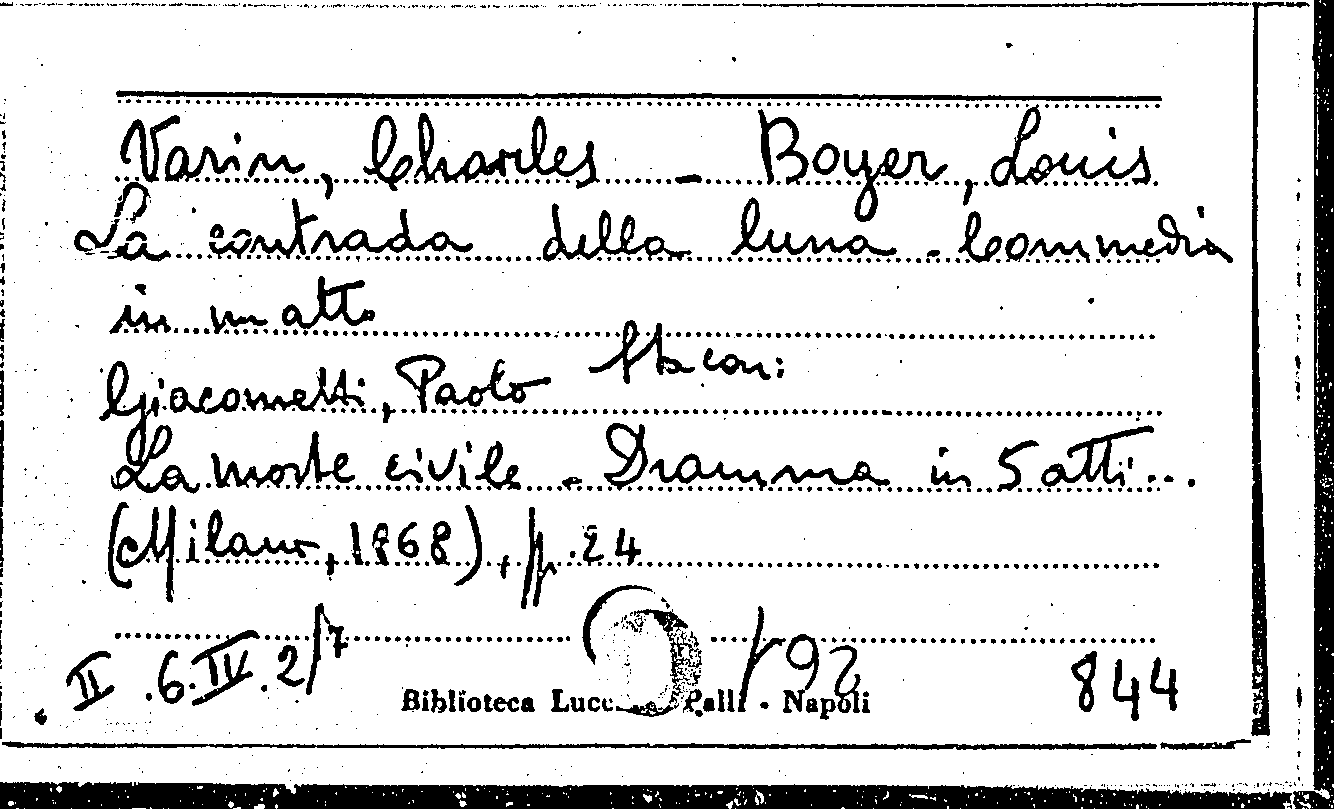 Varin, Charles - Boyer, Louis
La contrada della luna - Commedia
in un atto
Giacometti, Paolo Sta con:
La morte civile - Dramma in 5 atti...
(Milano, 1868), p. 24
II .6.IV.2/7 192 844
Biblioteca Lucc Palli - Napoli